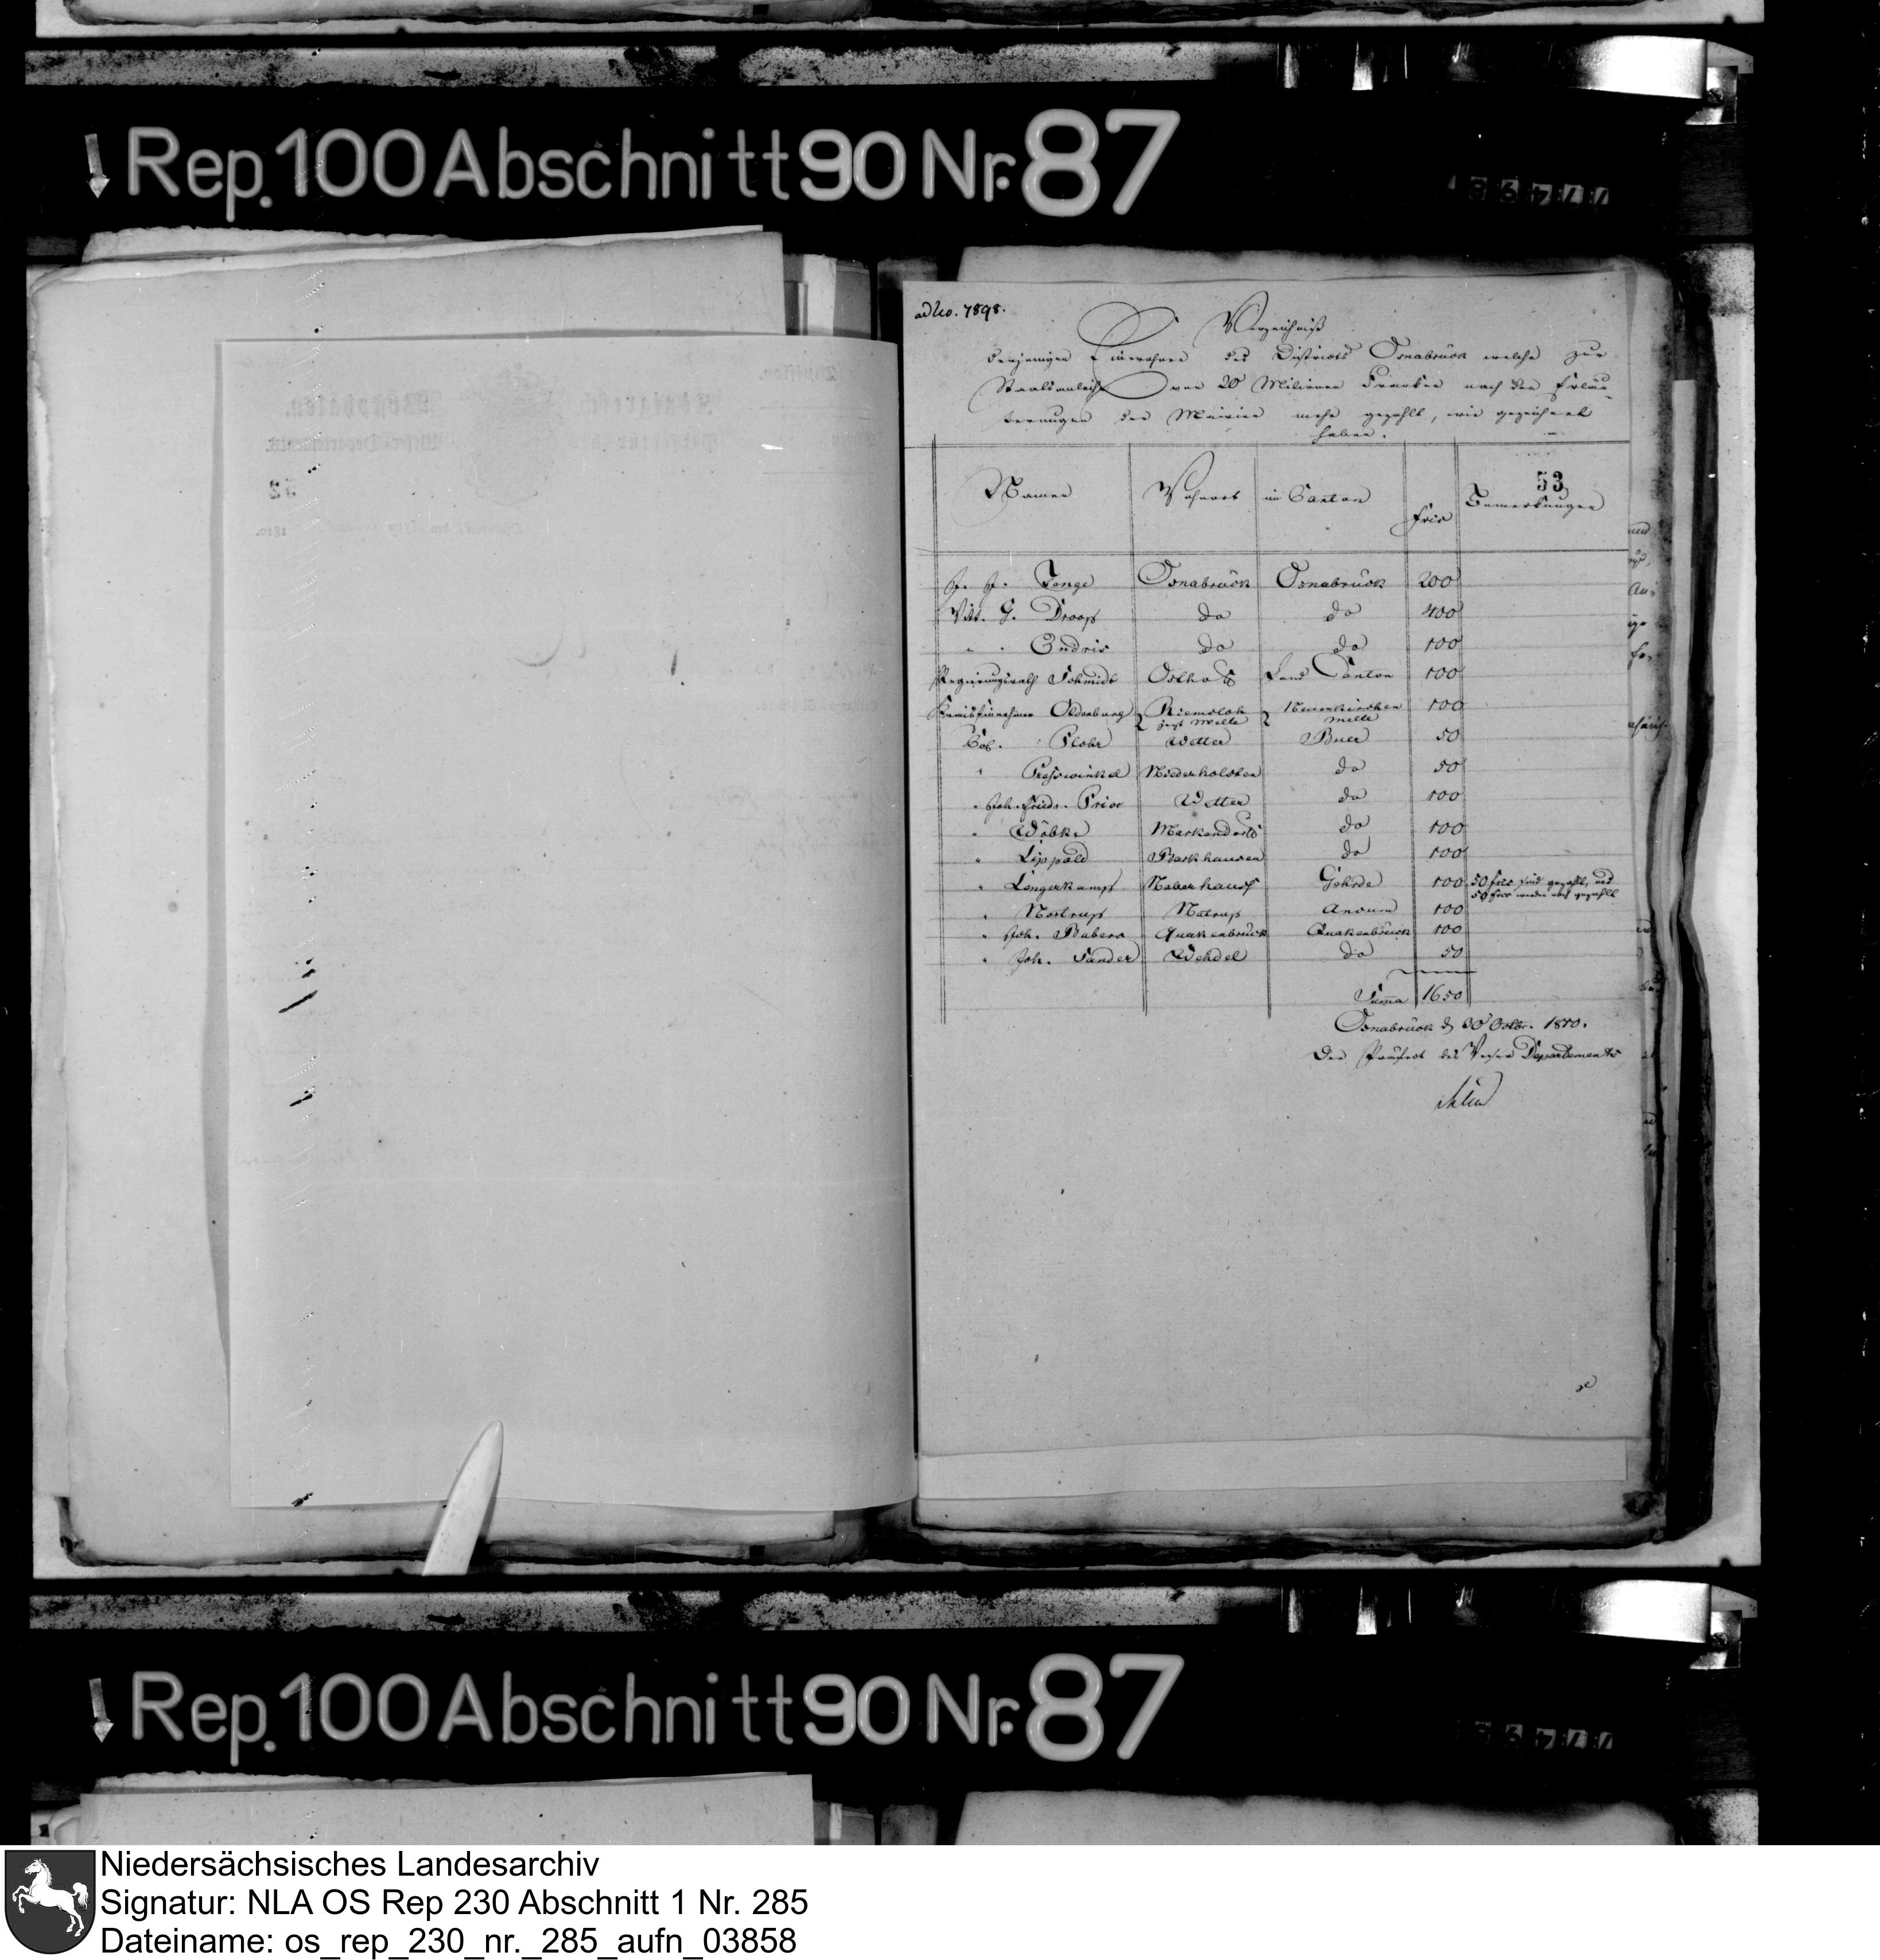 Rep. 100 Abschnitt 90 Nr. 87
ad No. 7898.
Verzeichniß
derjenigen Einwohner des Districts Osnabrück welche zur
Staatsanleihe von 20 Milionen Franken nach den Erläu
terungen der Mairien mehr gezahlt, wie gezeichnet
haben.
53
Namen Wohnort im Canton Frcs Bemerkungen
J. J. Tenge Osnabrück Osnabrück 200
Wit. G. Droop do do 400
" " do do 100
Regierungsrath Schmidt Osthoff Land Canton 100
Kreiseinnehmer Oldenburg Riemsloh Neuenkirchen 100
jezt Melle Melle
Col. Flohr Wetter Buer 50
" Presswinkel Niederholsten do 50
" Joh. Fried. Prior Wetter do 100
" Wöbke Markendorf do 100
" Lippold Barkhausen do 100
" Lengerkamp Gehrde 100 50 frcs sind gezahlt, und
50 frcs werden noch gezahlt
" Nortrup Notrup Ancum 100
" Joh. Quakenbrück Quakenbrück 100
" Joh. Sander Wehdel do 50
Suma 1650
Osnabrück d 30 Octbr. 1810.
Der Präfect des Weser Departements
Rep. 100 Abschnitt 90 Nr. 87
Niedersächsisches Landesarchiv
Signatur: NLA OS Rep 230 Abschnitt 1 Nr. 285
Dateiname: os_rep_230_nr._285_aufn_03858